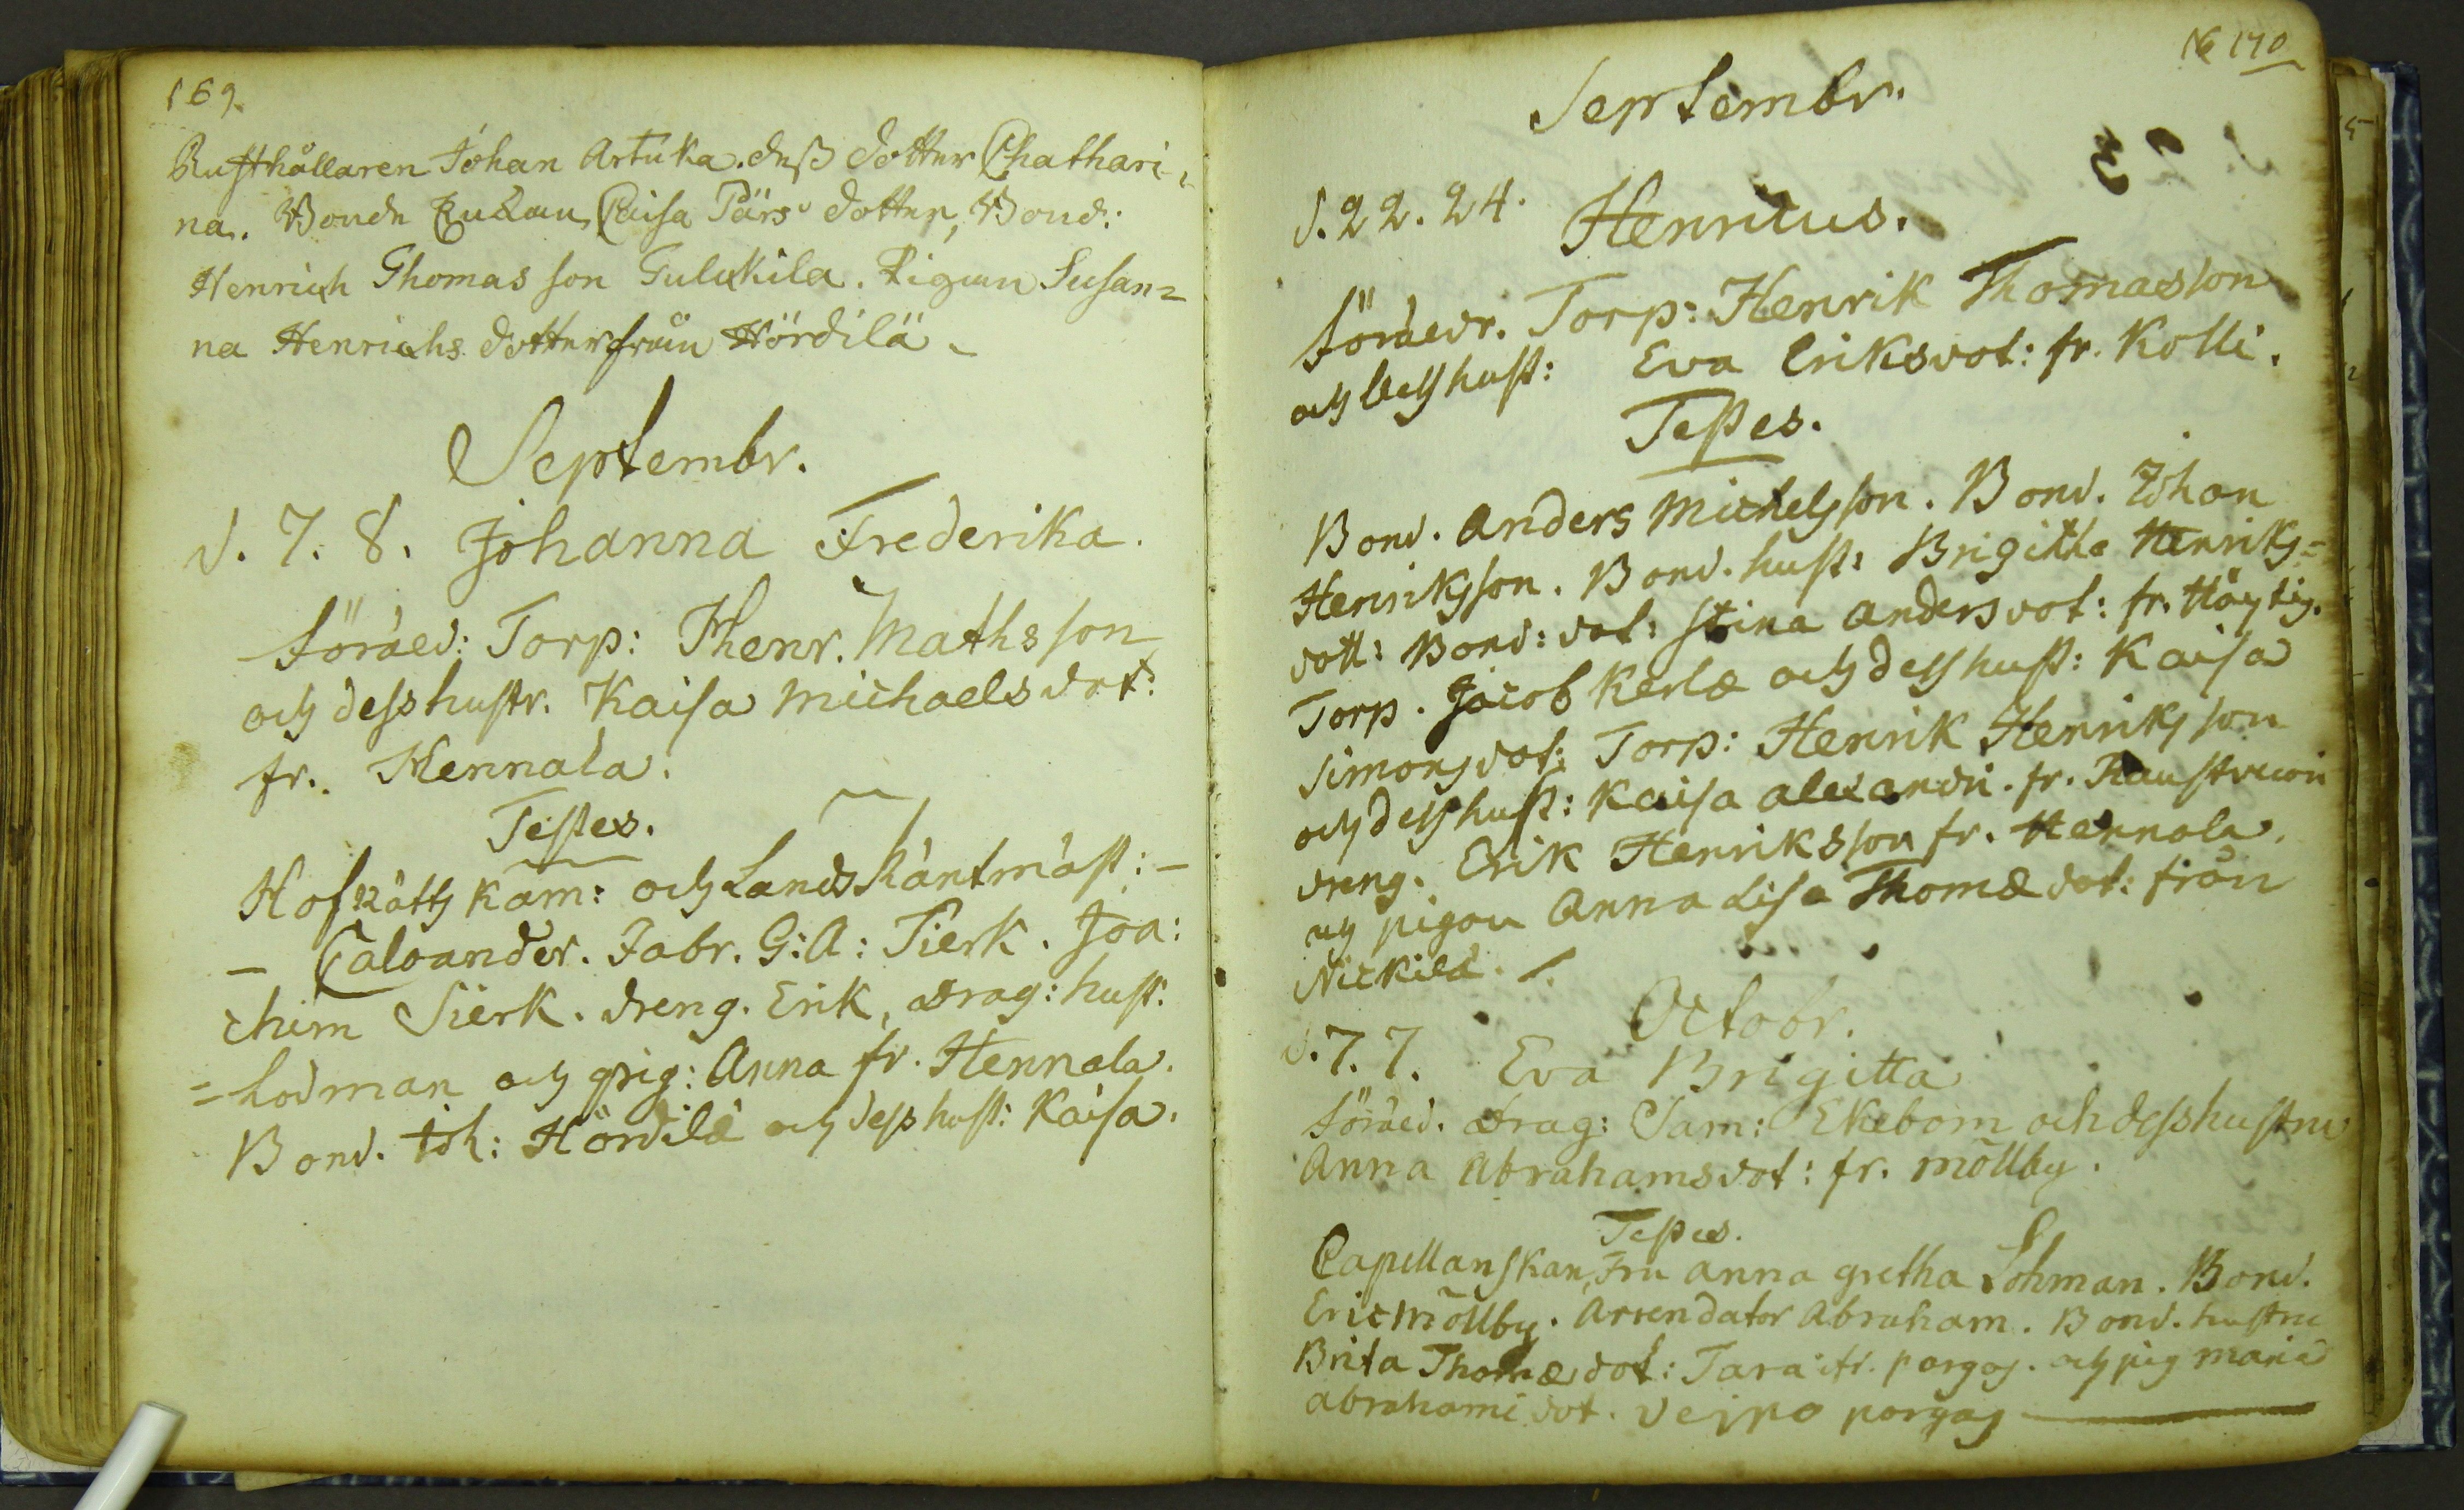 169.
Rusthållaren Johan Artuka. dess dotter Chathari-
na. Bonde Caisa Pärs dotter, Bond:
Henrich Thomas son Gulukila. Pigan Susan=
na Henrichs dotter från Hördilä
Septembr.
d. 7. 8. Johanna Frederika.
föräld: Torp: Henr. Mathsson
och dess hustr. Kaisa Michaelsdot:
fr. Hennala.
Testes.
Hofrätts Kam: och Lands Räntmäst: -
- Caloander. Fabr. G: A: Sierk. Joa:
chim Sierk. dreng. Erik, Drag: hust:
= Lodman och pig: Anna fr. Hennala.
Bond. Joh: Hördilä och dess hust: Kaisa.
170
Septembr.
d. 22. 24. Henricus.
föräldr. Torp: Henrik Thomasson
och dess hust: Eva Eriksdot: fr. Kolli.
Testes.
Bond. Anders Michelsson. Bond. Johan
Henriksson. Bond. hust: Brigitha Henriks=
dott: Bond: dot: Stina Andersdot: fr.
Torp. Jacob Kerlæ och dess hust: Kaisa
Simonsdot: Torp: Henrik Henriksson
och dess hust: Kaisa Alexandri. fr.
dreng. Erik Henriksson fr. Hennala.
och pigan Anna Lisa Thomædot: från
Nickilä.
Octobr.
d. 7. 7. Eva Brigitta
föräld. Drag: Sam: Ekebom och dess hustru
Anna Abrahamsdot: fr. Möllby.
Testes.
Capellanskan, Fru Anna Gretha Lohman. Bond.
Eric Möllby. Arrendator Abraham. Bond. hustru
Brita Thomædot: Tara fr. porgog. och pig Maria
Abrahami dot. Veipo porgog